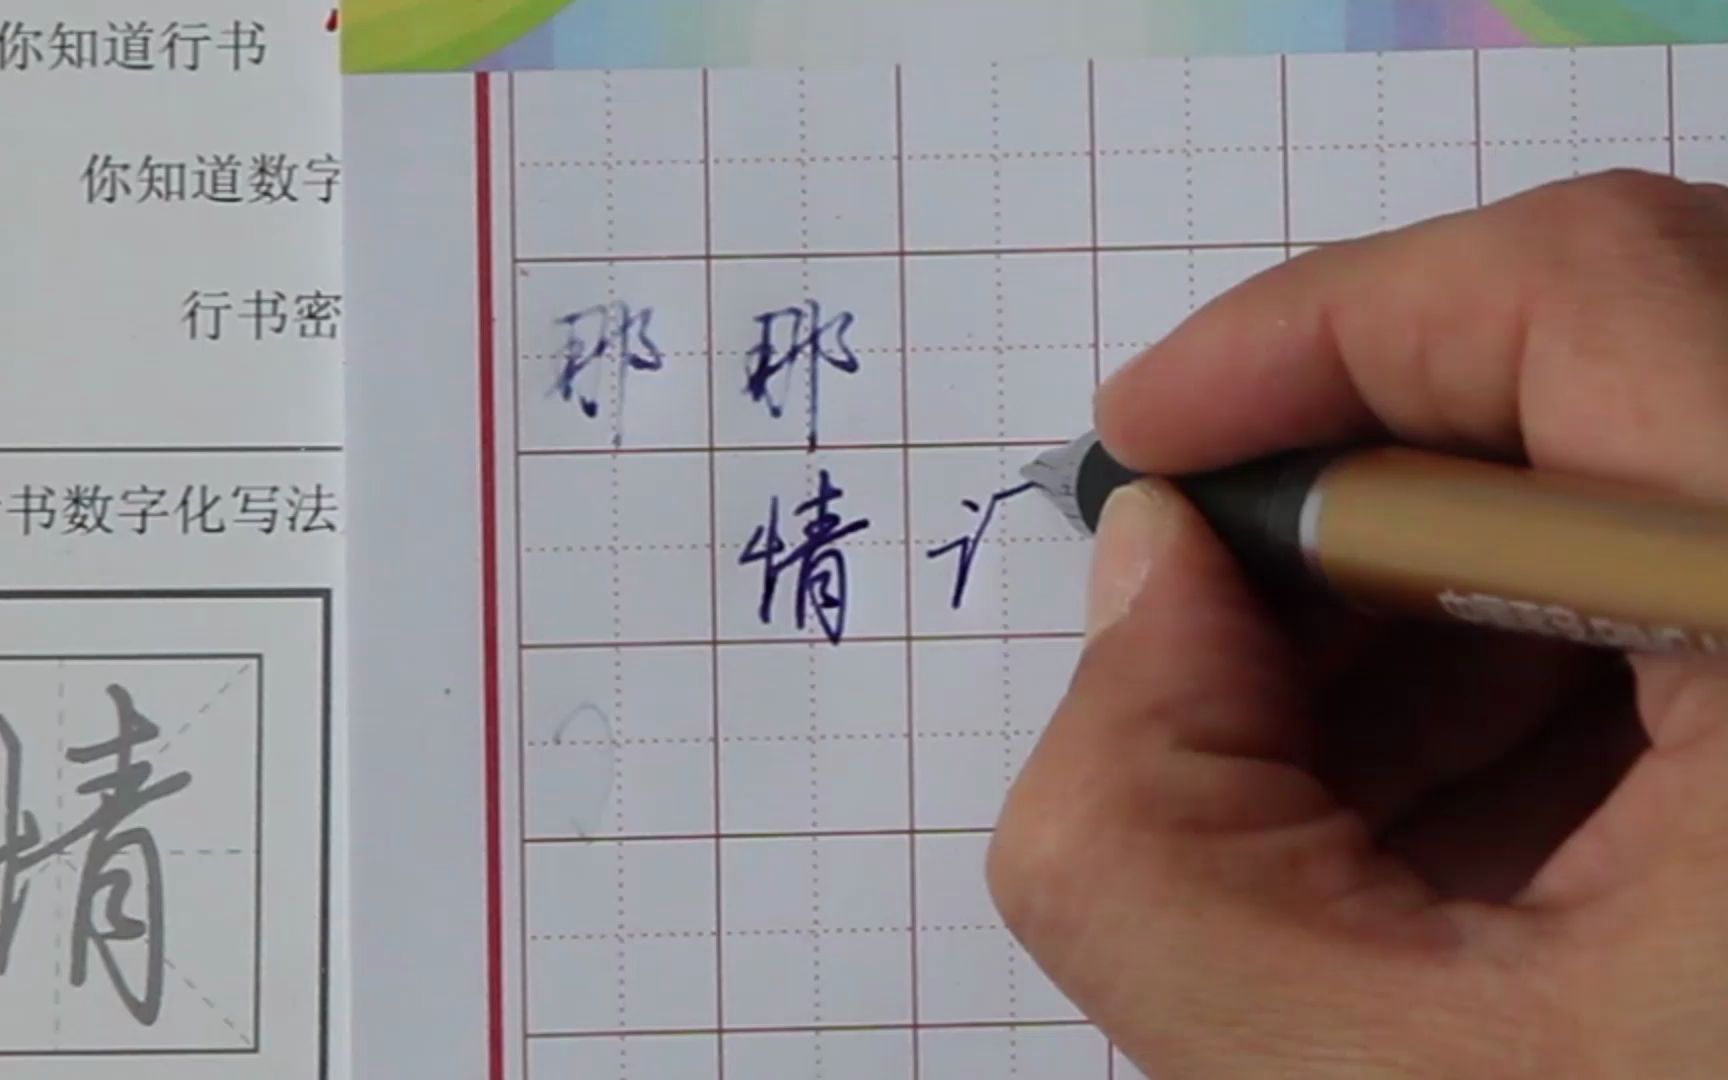 你知道行书
你知道数字
行书密
书数字化写法
情
那 那
情